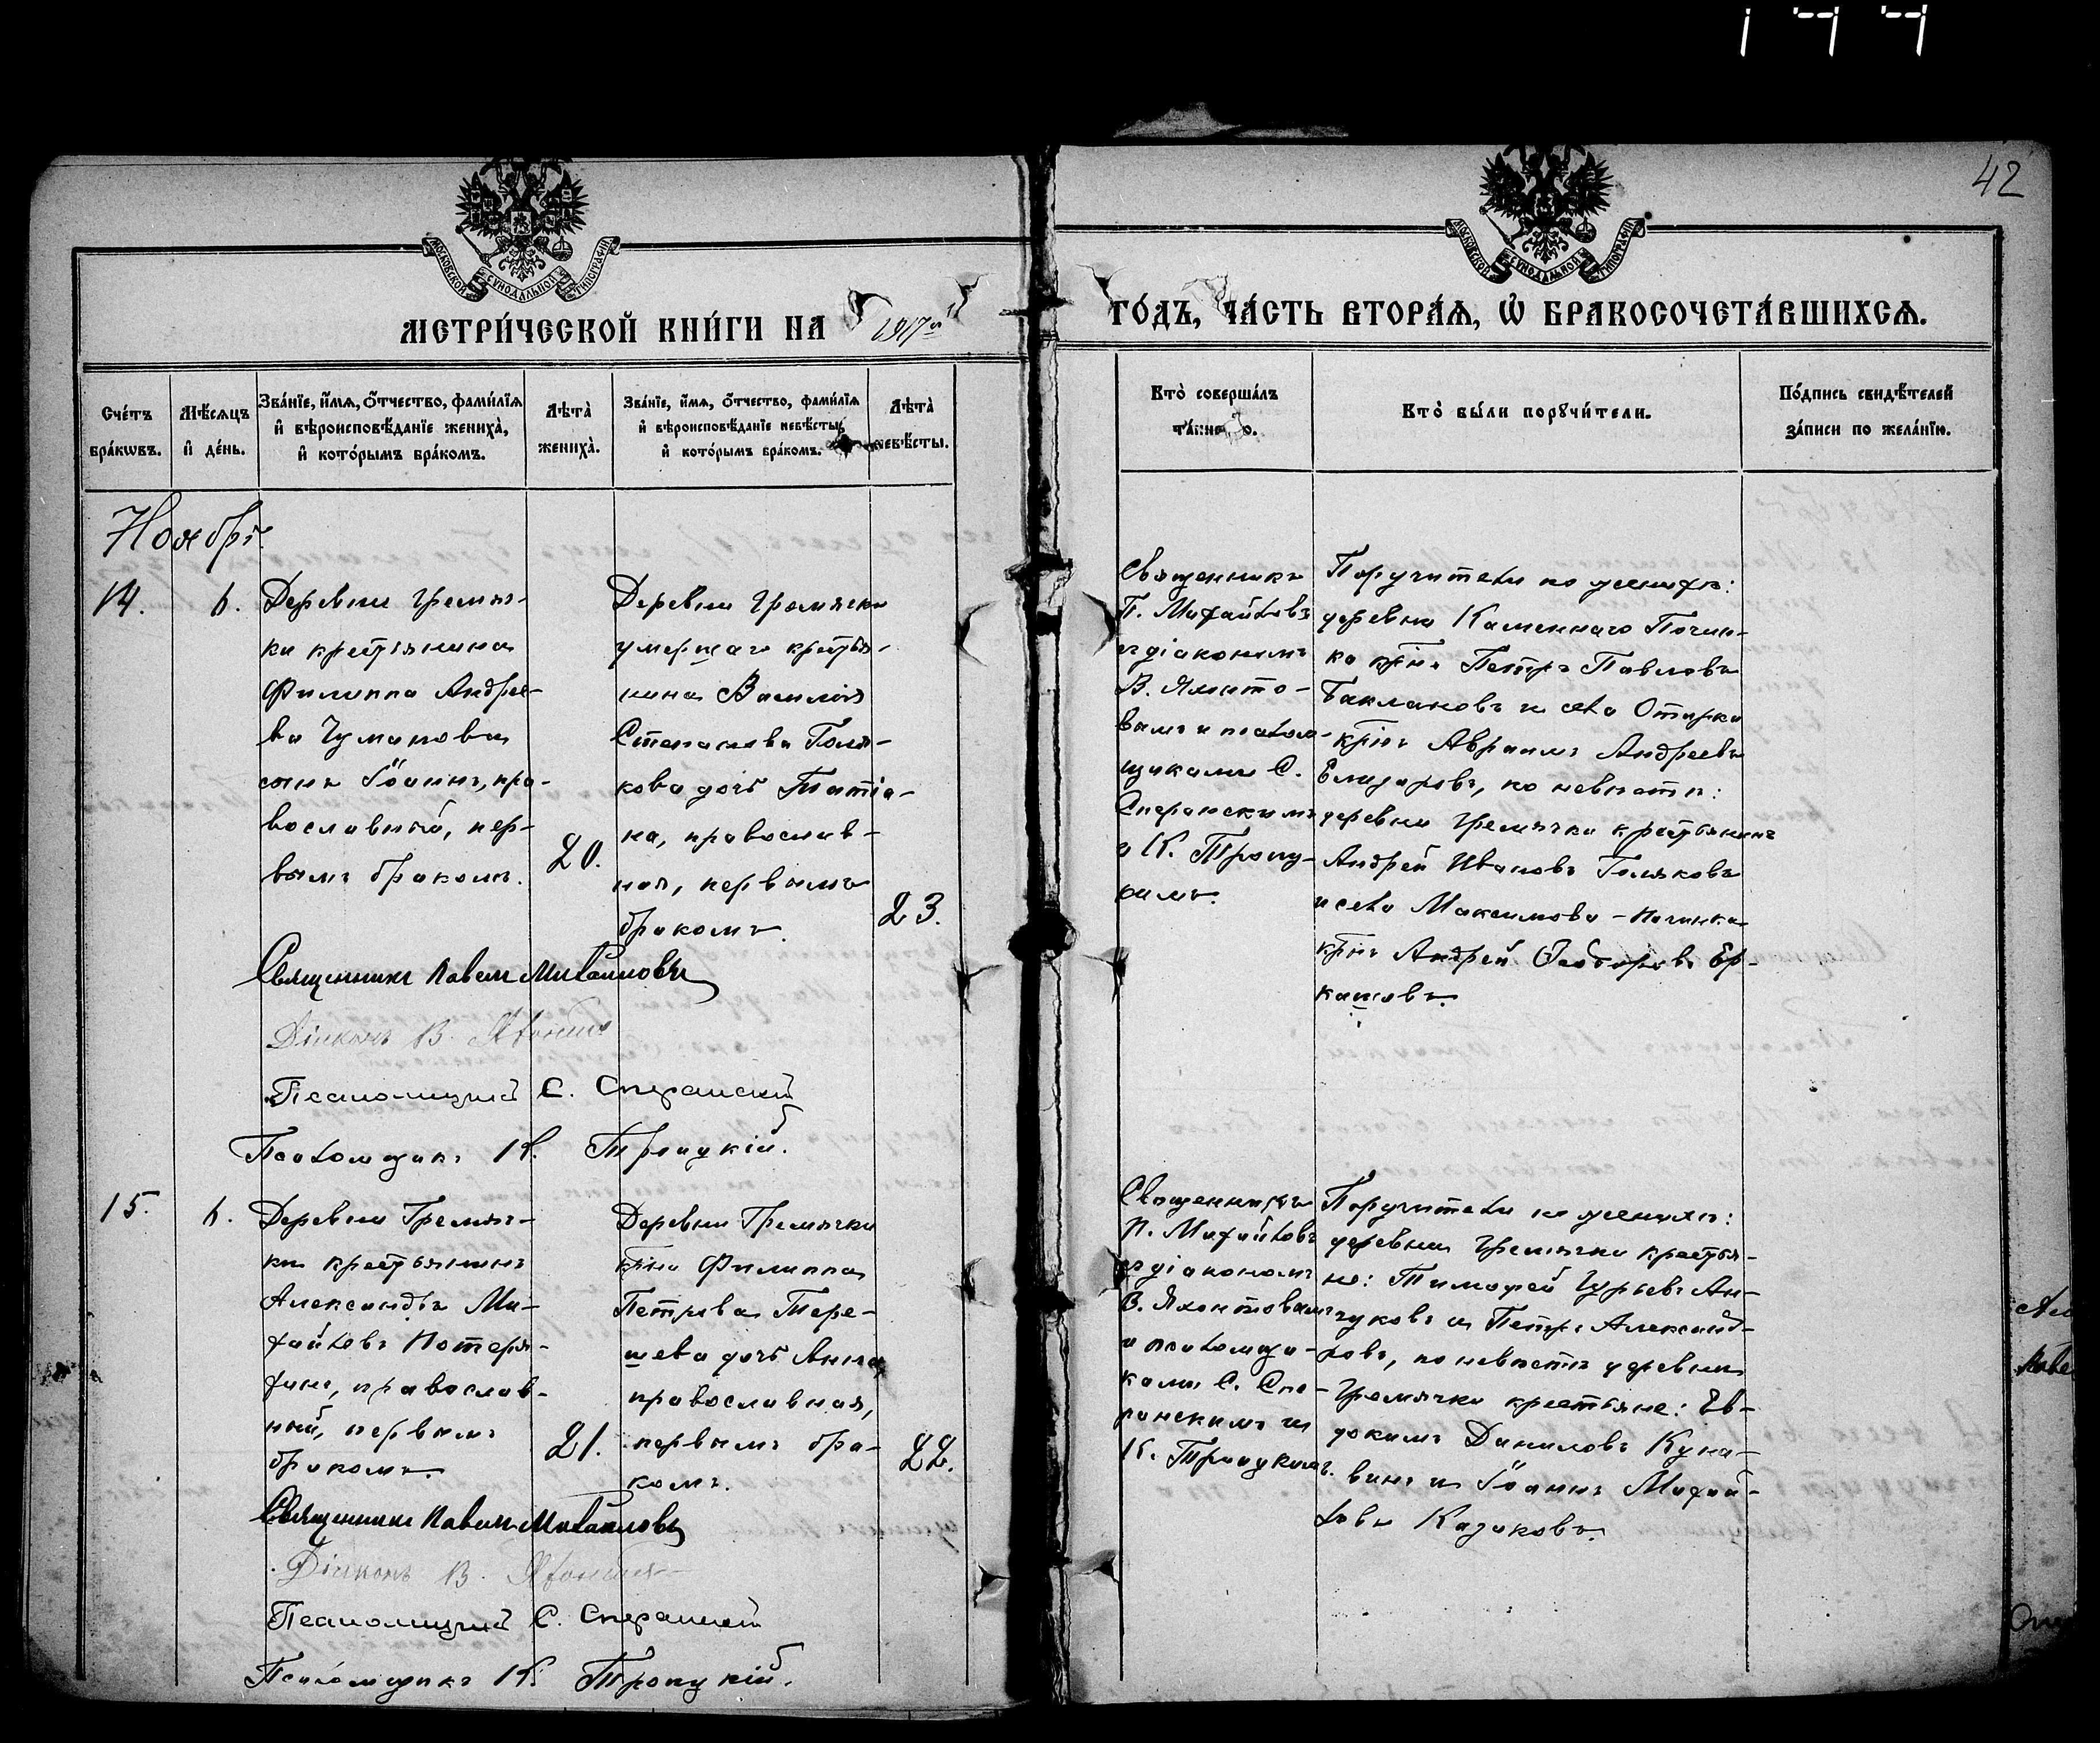 144
42
МОСКОВСКОЙ СѴНОДАЛЬНОЙ ТИПОГРАФІИ
МОСКОВСКОЙ СѴНОДАЛЬНОЙ ТИПОГРАФІИ
МЕТРИ́ЧЕСКОЙ КНИ́ГИ НА 1917й ГО́ДЪ, ЧА́СТЬ ВТОРА́Ѧ, Ѡ҆ БРАКОСОЧЕТА́ВШИХСѦ.
Сче́тъ бра́кѡвъ.
Мѣ́сѧцъ и҆ де́нь.
Зва́нїе, и҆́мѧ, ѻ҆́тчество, фами́лїѧ
и҆ вѣроисповѣ́данїе жениха̀,
и҆ кото́рымъ бра́комъ.
Лѣта̀ жениха̀.
Зва́нїе, и҆́мѧ, ѻ҆́тчество, фами́лїѧ
и҆ вѣроисповѣ́данїе невѣ́сты,
и҆ кото́рымъ бра́комъ.
Лѣта̀ невѣ́сты.
Кто̀ соверша́лъ
Кто̀ бы́ли порꙋчи́тели.
По́дпись свидѣ́телей
за́писи по жела́нїю.
Ноябрь.
14.
6.
Деревни Гремяч-
ки крестьянина
Филиппа Андрее-
ва Чуманова
сынъ Іоаннъ, пра-
вославный, пер-
вымъ бракомъ.
20.
Деревни Гремячки
умершаго крестья-
нина Василія
Степанова Голя-
кова дочь Татіа-
на, православ-
ная, первымъ
бракомъ.
23.
Священникъ
П. Михайловъ
съ діакономъ
В. Яхонто-
вымъ и псалом-
щиками С.
Сперанскимъ
и К. Троиц-
кимъ.
Поручители по женихѣ:
деревни Каменнаго Почин-
ка кр҃нъ Петръ Павловъ
Баклановъ и села Отарка
кр҃нъ Авраамъ Андреевъ
Елизаровъ, по невѣстѣ:
деревни Гремячки крестьянинъ
Андрей Ивановъ Голяковъ
и села Максимова-Починка
кр҃нъ Андрей Ѳеодоровъ Ер-
кашовъ.
Священникъ Павелъ Михайловъ
Діаконъ В. Яхонтовъ
Псаломщикъ С. Сперанскій
Псаломщикъ К. Троицкій.
15.
6.
Деревни Гремяч-
ки крестьянинъ
Александръ Ми-
хайловъ Потеря-
хинъ, православ-
ный, первымъ
бракомъ.
21.
Деревни Гремячки
кр҃на Филиппа
Петрова Тере-
шева дочь Анна,
православная,
первымъ бра-
комъ.
22.
Священникъ
П. Михайловъ
съ діакономъ
В. Яхонтовымъ
и псаломщи-
ками С. Спе-
ранскимъ и
К. Троицкимъ.
Поручители по женихѣ:
деревни Гремячки крестья-
не: Тимофей Гурьевъ Ан-
чуковъ и Петръ Александ-
ровъ, по невѣстѣ деревни
Гремячки крестьяне: Ев-
докимъ Даниловъ Куна-
винъ и Іоаннъ Михай-
ловъ Казаковъ.
Священникъ Павелъ Михайловъ
Діаконъ В. Яхонтовъ
Псаломщикъ С. Сперанскій
Псаломщикъ К. Троицкій.